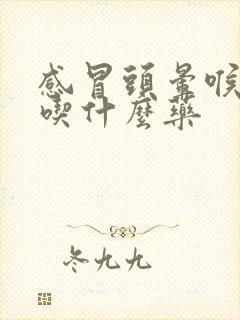 感冒頭暈喉
喫什麼藥
冬九九